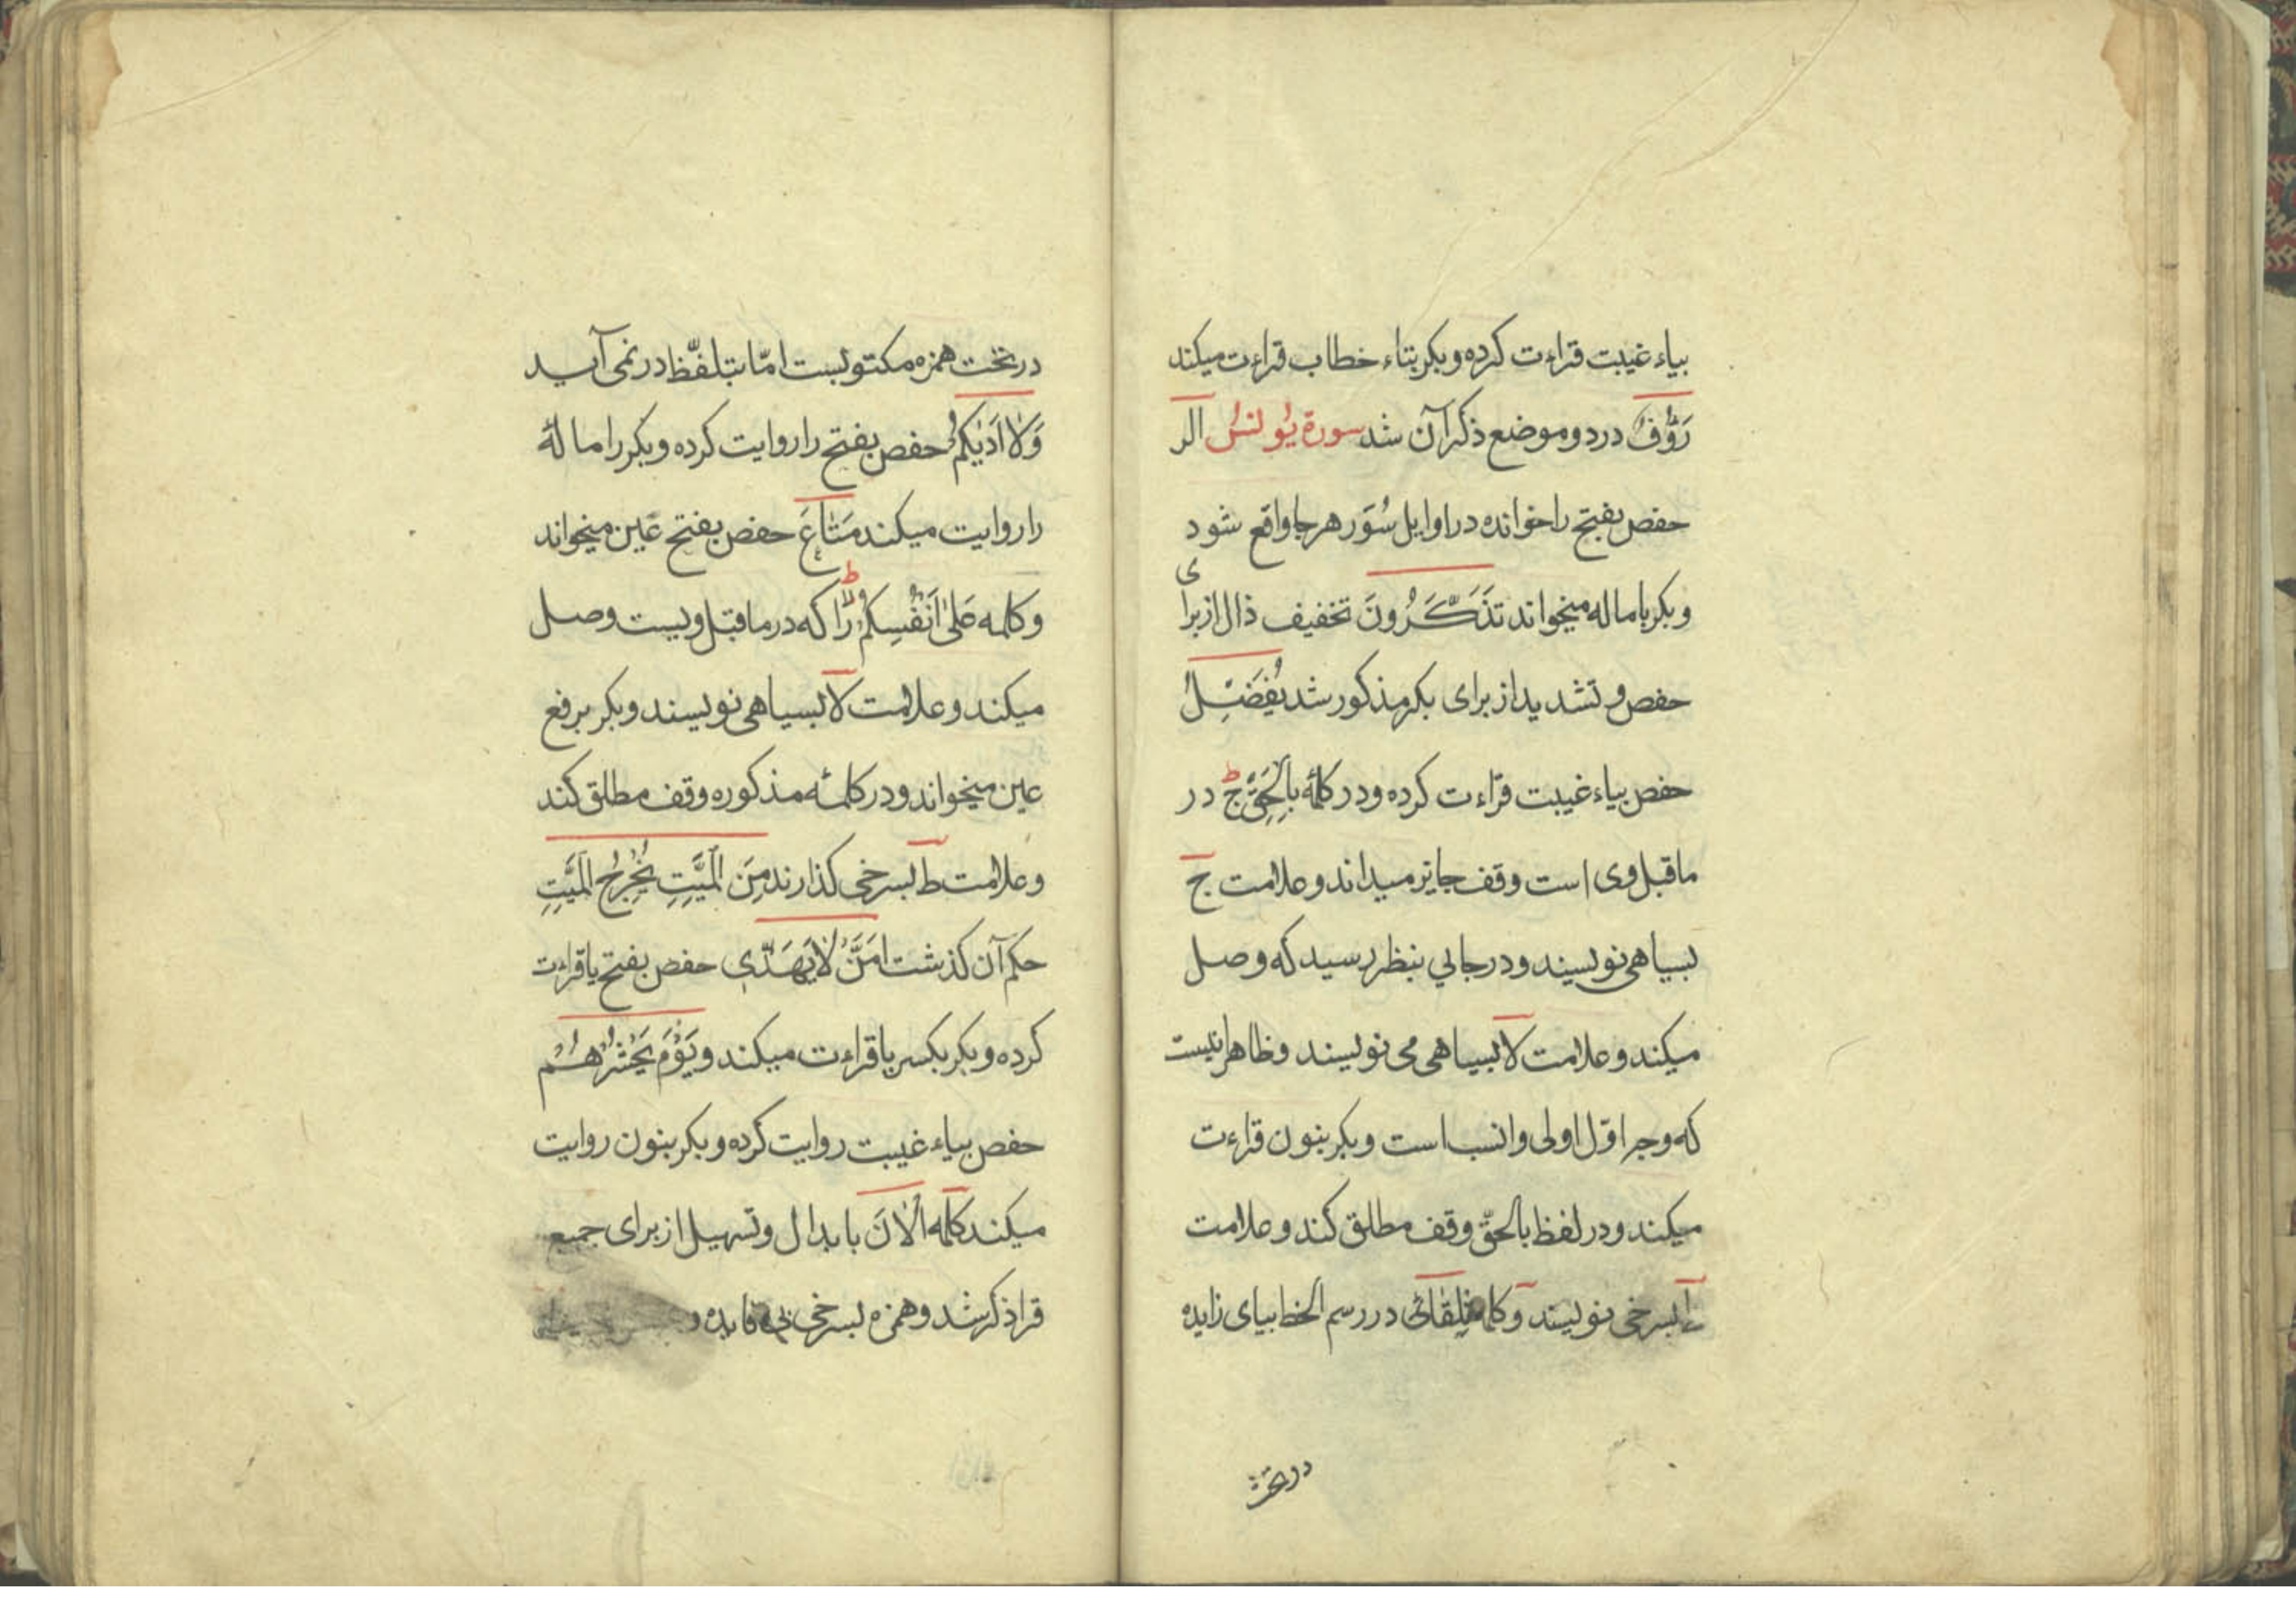 بیاء غیبت قراءت کرده و بکر بتاء خطاب قراءت میکند
رَؤُفٌ در دو موضع ذکر آن شد سورة یونس الر
حفص بفتح را خوانده در اوایل سُوَر هر جا واقع شود
و بکر بامالە میخواند تَذَكَّرُونَ تخفیف ذال از برای
حفص و تشدید از برای بکر مذکور شد یُفَصِّلُ
حفص بیاء غیبت قراءت کرده و در کلمهٔ بِالْحَقِّ ج در
ماقبل وی است وقف جایز میداند و علامت ج
بسیاهی نویسند و در جایی بنظر رسید که وصل
میکند و علامت لا بسیاهی می نویسند و ظاهر اینست
که وجه اوّل اولی و انسب است و بکر بنون قراءت
میکند و در لفظ بالحقّ وقف مطلق کند و علامت
ط بسرخی نویسند و کلمه تِلْقَائِ در رسم الخط بیای زایده
در تحت
در تحت همزه مکتوبست امّا بتلفّظ در نمی آید
وَلَا اَدْرٰیكُمْ حفص بفتح را روایت کرده و بکر را امالهٔ
را روایت میکند مَتَاعَ حفص بفتح عین میخواند
و کلمه عَلٰی اَنْفُسِكُمْ را که در ماقبل ویست وصل
میکند و علامت لا بسیاهی نویسند و بکر برفع
عین میخواند و در کلمهٔ مذکوره وقف مطلق کند
و علامت ط بسرخی گذارند مِنَ الْمَیِّتِ یُخْرِجُ الْمَیِّتِ
حکم آن گذشت اَمَّنْ لَا یَهِدِّی حفص بفتح یا قراءت
کرده و بکر بکسر یا قراءت میکند و یَوْمَ یَحْشُرُهُمْ
حفص بیاء غیبت روایت کرده و بکر بنون روایت
میکند کلمه اٰلْاٰنَ بابدال و تسهیل از برای جمیع
قرا ذکر شد و همزه بسرخی بی فایده و